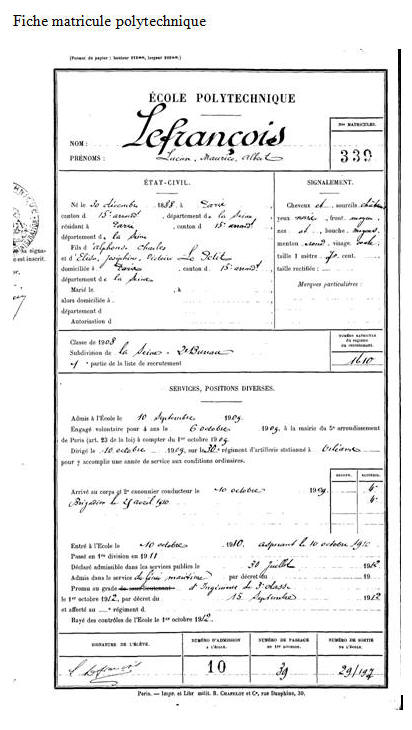 Fiche matricule polytechnique
(Format du papier : hauteur 0m,   largeur 0m,  )
ÉCOLE POLYTECHNIQUE
Nos MATRICULES.
NOM : Lefrançois
339
PRÉNOMS : Lucien, Maurice, Albert
ÉTAT-CIVIL.
SIGNALEMENT.
Né le 30 décembre 1888, à Paris
canton d 15e arrondt, département de la Seine
résidant à Paris canton d 15e arrondt
département de la Seine
Fils d'Alphonse Charles
et d'Elisa, Joséphine, Victoire Le Petit
domiciliés à Paris, canton d 15e arrondt
département de la Seine
Marié le , à
alors domiciliée à
département d
Autorisation d
Cheveux et sourcils châtain
yeux front moyen
nez et bouche moyens
menton rond, visage ovale
taille 1 mètre 70 cent.
taille rectifiée :
Marques particulières :
Classe de 1908
Subdivision de la Seine - 2e Bureau
partie de la liste de recrutement
NUMÉRO MATRICULE
du registre
du recrutement.
1610
SERVICES, POSITIONS DIVERSES.
Admis à l'École le 10 Septembre 1909
Engagé volontaire pour 4 ans le 6 octobre 1909, à la mairie du 5e arrondissement
de Paris (art. 23 de la loi) à compter du 1er octobre 1909
Dirigé le 10 octobre 1909, sur le 30e régiment d'artillerie stationné à Orléans
pour y accomplir une année de service aux conditions ordinaires.
Arrivé au corps et 2e canonnier conducteur le 10 octobre 1909
Brigadier le 25 avril 1910
Entré à l'École le 10 octobre 1910, aspirant le 10 octobre 1910
Passé en 1re division en 1911
Déclaré admissible dans les services publics le 30 juillet 1912
Admis dans le service du Génie maritime par décret du 19
Promu au grade de sous-lieutenant d'Ingénieur de 3e classe
le 1er octobre 1912, par décret du 15 Septembre 1912
et affecté au régiment d
Rayé des contrôles de l'École le 1er octobre 1912.
SIGNATURE DE L'ÉLÈVE.
NUMÉRO D'ADMISSION
A L'ÉCOLE.
NUMÉRO DE PASSAGE
EN 1re DIVISION.
NUMÉRO DE SORTIE
DE L'ÉCOLE.
L. Lefrançois
10
39
29/197
Paris. — Impr. et Libr. milit. R. CHAPELOT et Ce, rue Dauphine, 30.